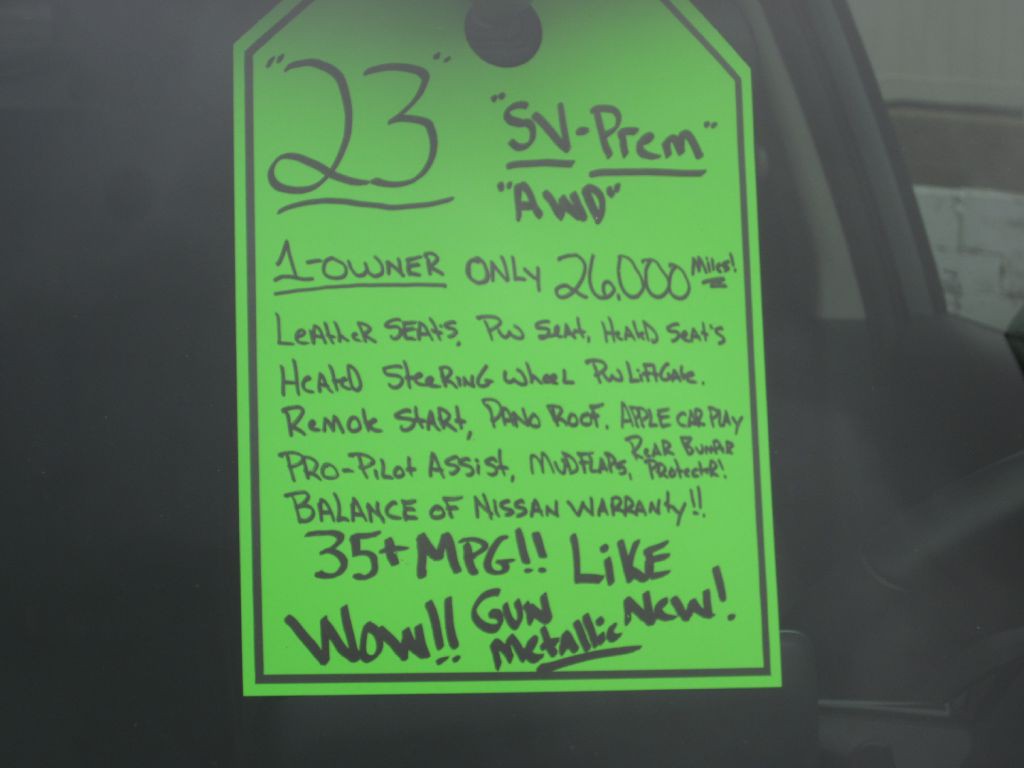 "23"
"SV-Prem"
"AWD"
1-OWNER ONLY 26,000 Miles!
LEATHER SEATS, PW SEAT, HEATED SEAT'S
HEATED STEERING WHEEL PW LIFTGATE.
REMOTE START, PANO ROOF. APPLE CAR PLAY
PRO-PILOT ASSIST, MUDFLAPS, REAR BUMPER PROTECTR!
BALANCE OF NISSAN WARRANTY!!
35+ MPG!! LIKE NEW!
WOW!! GUN METALLIC